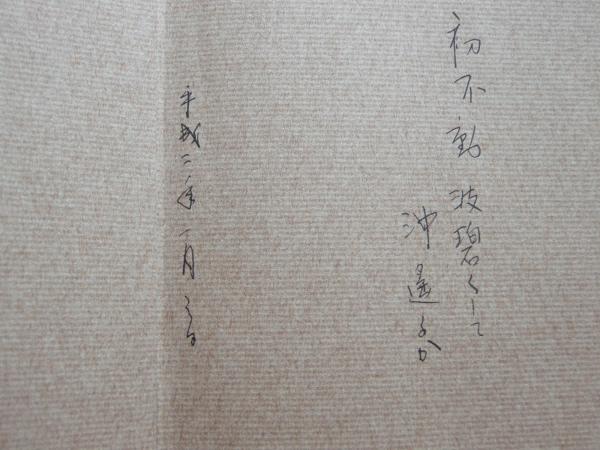 初不動波碧くして
沖遙るか
平成二年一月